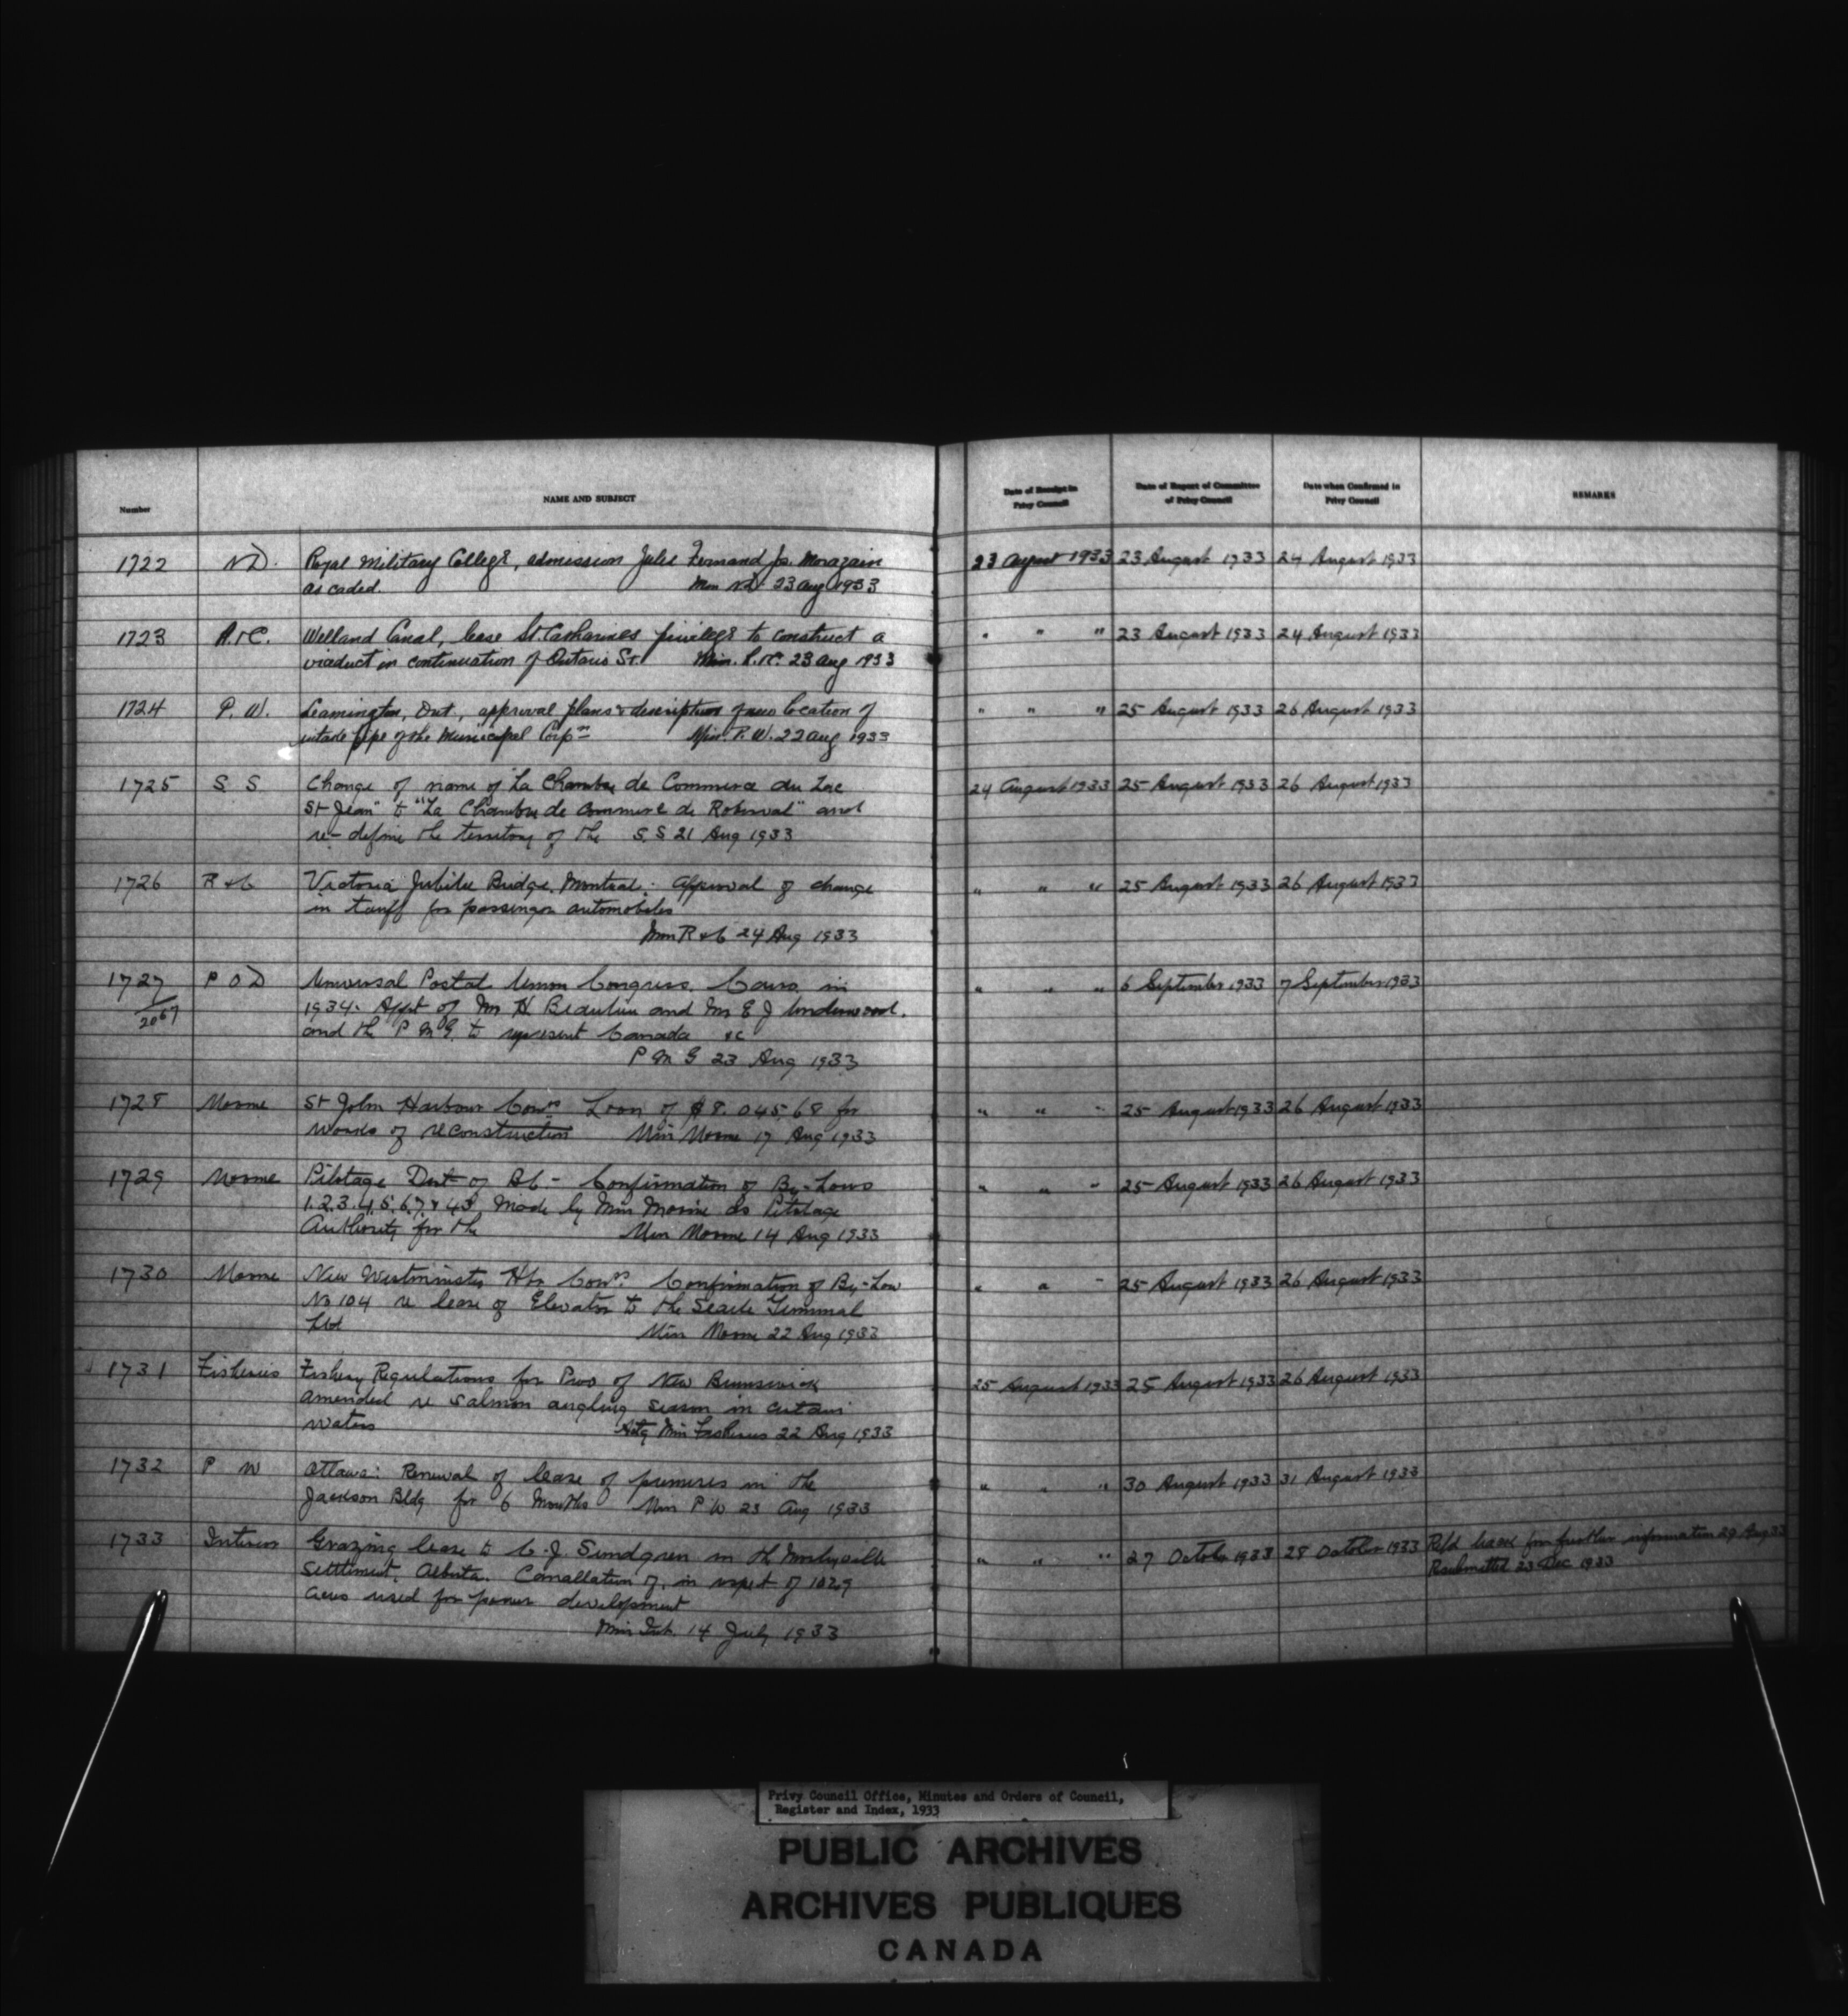 Number
NAME AND SUBJECT
Date of Receipt in Privy Council
Date of Report of Committee of Privy Council
Date when Confirmed in Privy Council
REMARKS
1722 N.D. Royal Military College, admission Jules Fernand Jos. Morazain 23 August 1933 23 August 1933 24 August 1933
as cadet. Min ND. 23 Aug 1933
1723 R.&C. Welland Canal, lease St. Catharines privilege to construct a " " " 23 August 1933 24 August 1933
viaduct in continuation of Ontario St. Min. R.&C. 23 Aug 1933
1724 P. W. Leamington, Ont., approval plans & description of new location of " " " 25 August 1933 26 August 1933
intake pipe of the Municipal Corpn Min. P. W. 22 Aug 1933
1725 S S Change of name of "La Chambre de Commerce du Lac 24 August 1933 25 August 1933 26 August 1933
St Jean" to "La Chambre de Commerce de Roberval" and
re-define the territory of the S. S 21 Aug 1933
1726 R & C Victoria Jubilee Bridge, Montreal: Approval of change " " " 25 August 1933 26 August 1933
in tariff for passenger automobiles
Min R & C 24 Aug 1933
1727 P O D Universal Postal Union Congress, Cairo, in " " " 6 September 1933 7 September 1933
/2067 1934: Appt of Mr H Beaulieu and Mr E J Underwood,
and the P M G. to represent Canada &c
P M G 23 Aug 1933
1728 Marine St John Harbour Comrs Loan of $8.045.68 for " " " 25 August 1933 26 August 1933
works of reconstruction Min Marine 17 Aug 1933
1729 Marine Pilotage Dist of B C - Confirmation of By-Laws " " " 25 August 1933 26 August 1933
1.2.3.4.5.6.7 & 43, made by Min Marine as Pilotage
Authority for the Min Marine 14 Aug 1933
1730 Marine New Westminster Hbr Comrs. Confirmation of By-Law " " " 25 August 1933 26 August 1933
No 104 re lease of Elevator to the Searle Terminal
Ltd Min Marine 22 Aug 1933
1731 Fisheries Fishery Regulations for Prov of New Brunswick 25 August 1933 25 August 1933 26 August 1933
amended re salmon angling season in certain
waters Actg Min Fisheries 22 Aug 1933
1732 P W Ottawa: Renewal of lease of premises in the " " " 30 August 1933 31 August 1933
Jackson Bldg for 6 months Min P W 23 Aug 1933
1733 Interior Grazing lease to C. J. Sundgren in the Morleyville " " " 27 October 1933 28 October 1933 Refd back for further information 29 Aug 33
Settlement, Alberta. Cancellation of, in respect of 10.29 Resubmitted 23 Dec 1933
acres used for power development
Min Int. 14 July 1933
Privy Council Office, Minutes and Orders of Council,
Register and Index, 1933
PUBLIC ARCHIVES
ARCHIVES PUBLIQUES
CANADA